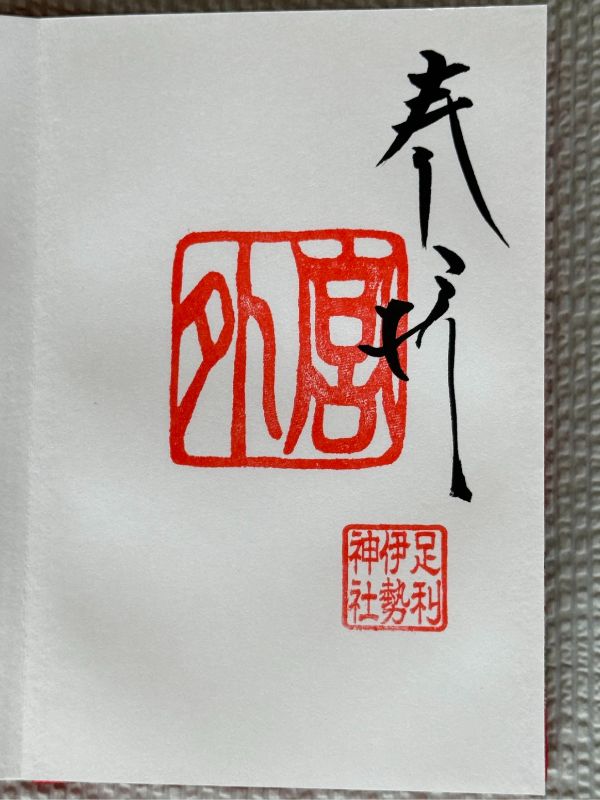 奉拝
外宮
足利
伊勢
神社